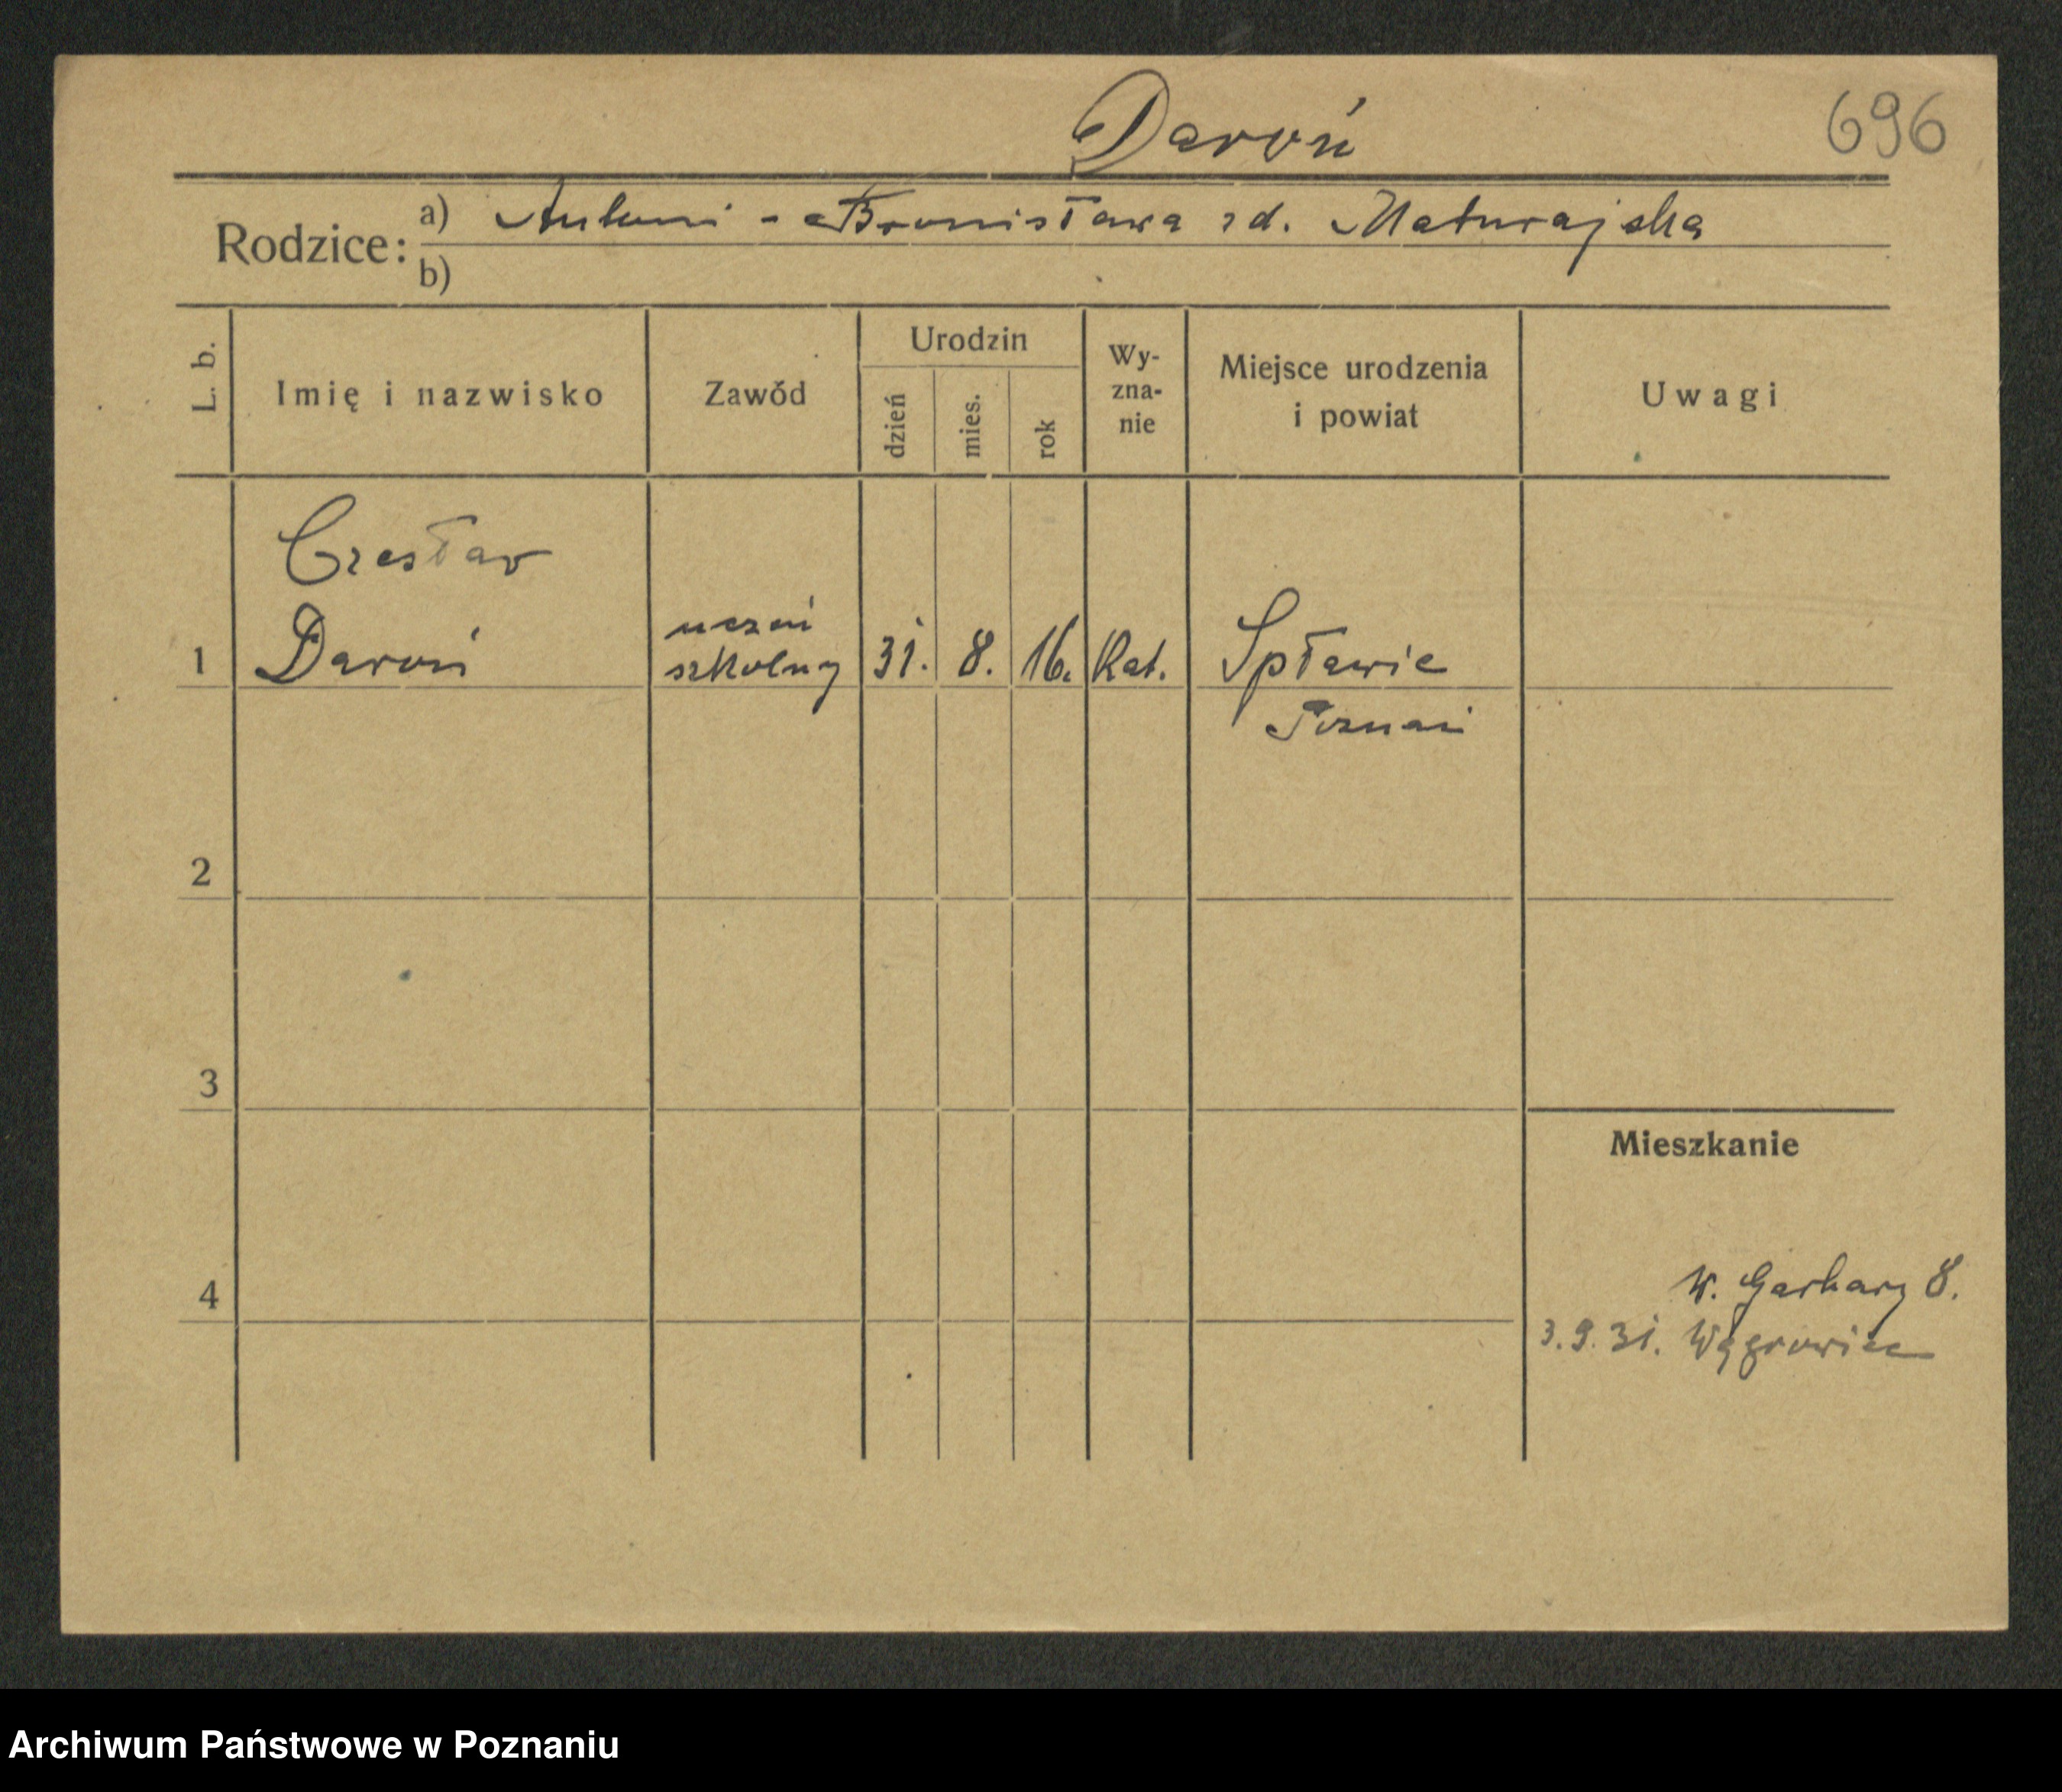 Daroń
696
Rodzice:
a) Antoni - Bronisława zd. Maturajska
b)
L. b.
Imię i nazwisko
Zawód
Urodzin
dzień
mies.
rok
Wy-
zna-
nie
Miejsce urodzenia
i powiat
Uwagi
Czesław
1 Daroń
uczeń
szkolny
31. 8. 16. Kat. Spławie
Poznań
2
3
Mieszkanie
4
W. Garbary 8.
3.9.31. Wągrowiec
Archiwum Państwowe w Poznaniu